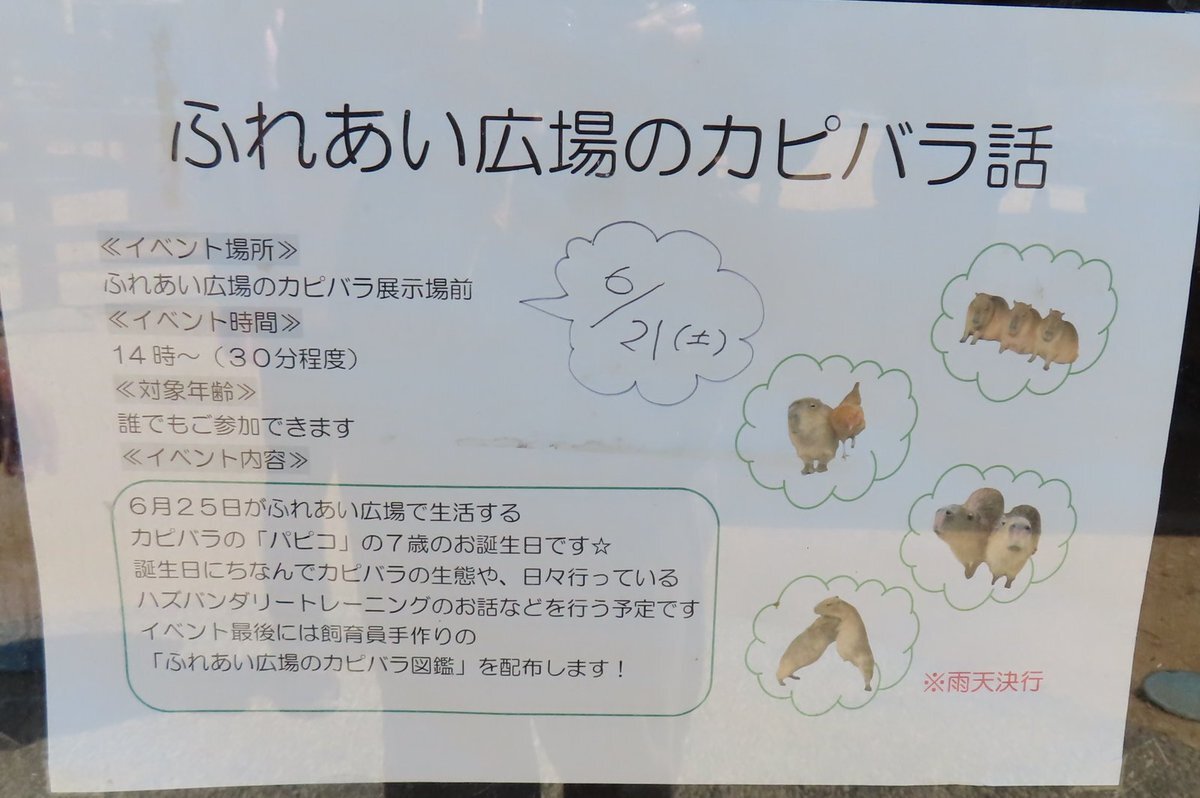 ふれあい広場のカピバラ話
≪イベント場所≫
ふれあい広場のカピバラ展示場前
≪イベント時間≫
14時～（30分程度）
≪対象年齢≫
誰でもご参加できます
≪イベント内容≫
6/21(土)
6月25日がふれあい広場で生活する
カピバラの「パピコ」の7歳のお誕生日です☆
誕生日にちなんでカピバラの生態や、日々行っている
ハズバンダリートレーニングのお話などを行う予定です
イベント最後には飼育員手作りの
「ふれあい広場のカピバラ図鑑」を配布します！
※雨天決行